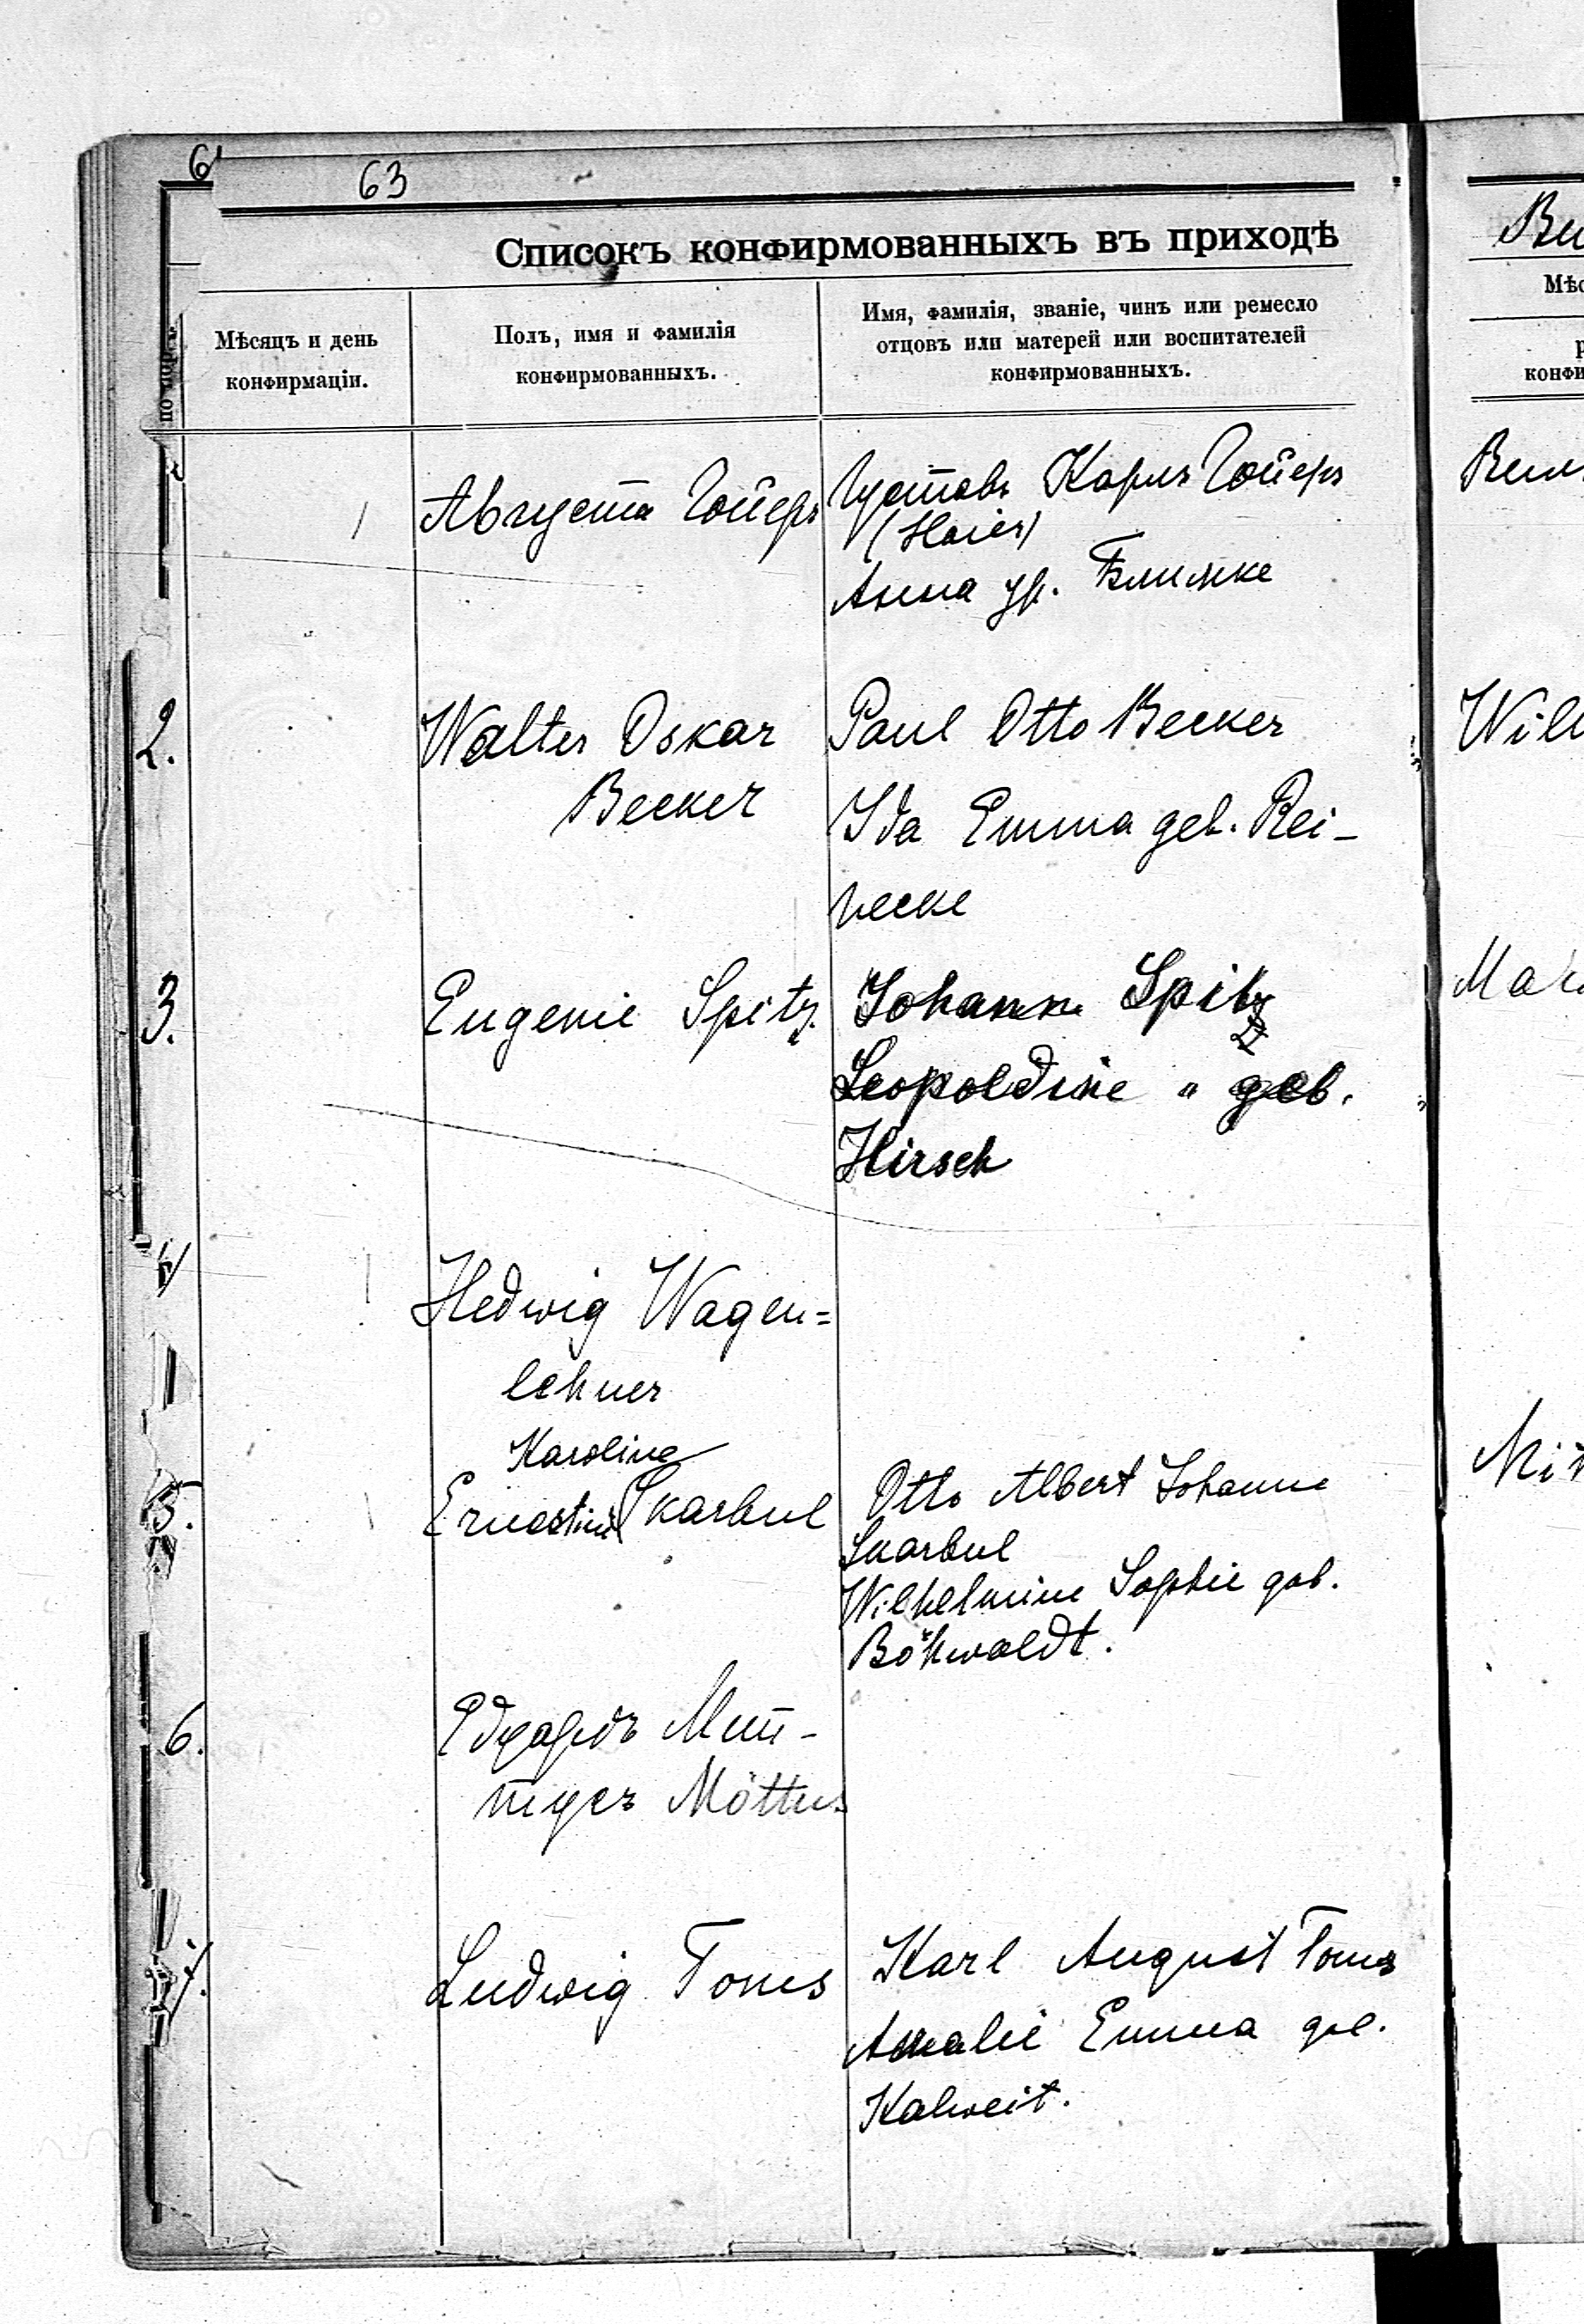 6
63
Списокъ конфирмованныхъ въ приходѣ
Мѣсяцъ и день
конфирмаціи.
Полъ, имя и фамилія
конфирмованныхъ.
Имя, фамилія, званіе, чинъ или ремесло
отцовъ или матерей или воспитателей
конфирмованныхъ.
Августа Гойеръ
Густавъ Карлъ Гойеръ
(Hoier)
Анна ур. Блимке
2.
Walter Oskar
Becker
Paul Otto Becker
Ida Emma geb. Rei-
necke
3.
Eugenie Spitz.
Johann Spitz
Leopoldine " geb.
Hirsch
4
Hedwig Wagen=
lehner
5.
Karoline
Ernestine Skarbul
Otto Albert Johann
Skarbul
Wilhelmine Sophie geb.
Böhwaldt.
6.
Эдуардъ Мет-
тусъ Möttus
7.
Ludwig Toms
Karl August Toms
Amalie Emma geb.
Kalweit.
Ви
Мѣс
р
конфи
Вил
Wil
Ma
Mi